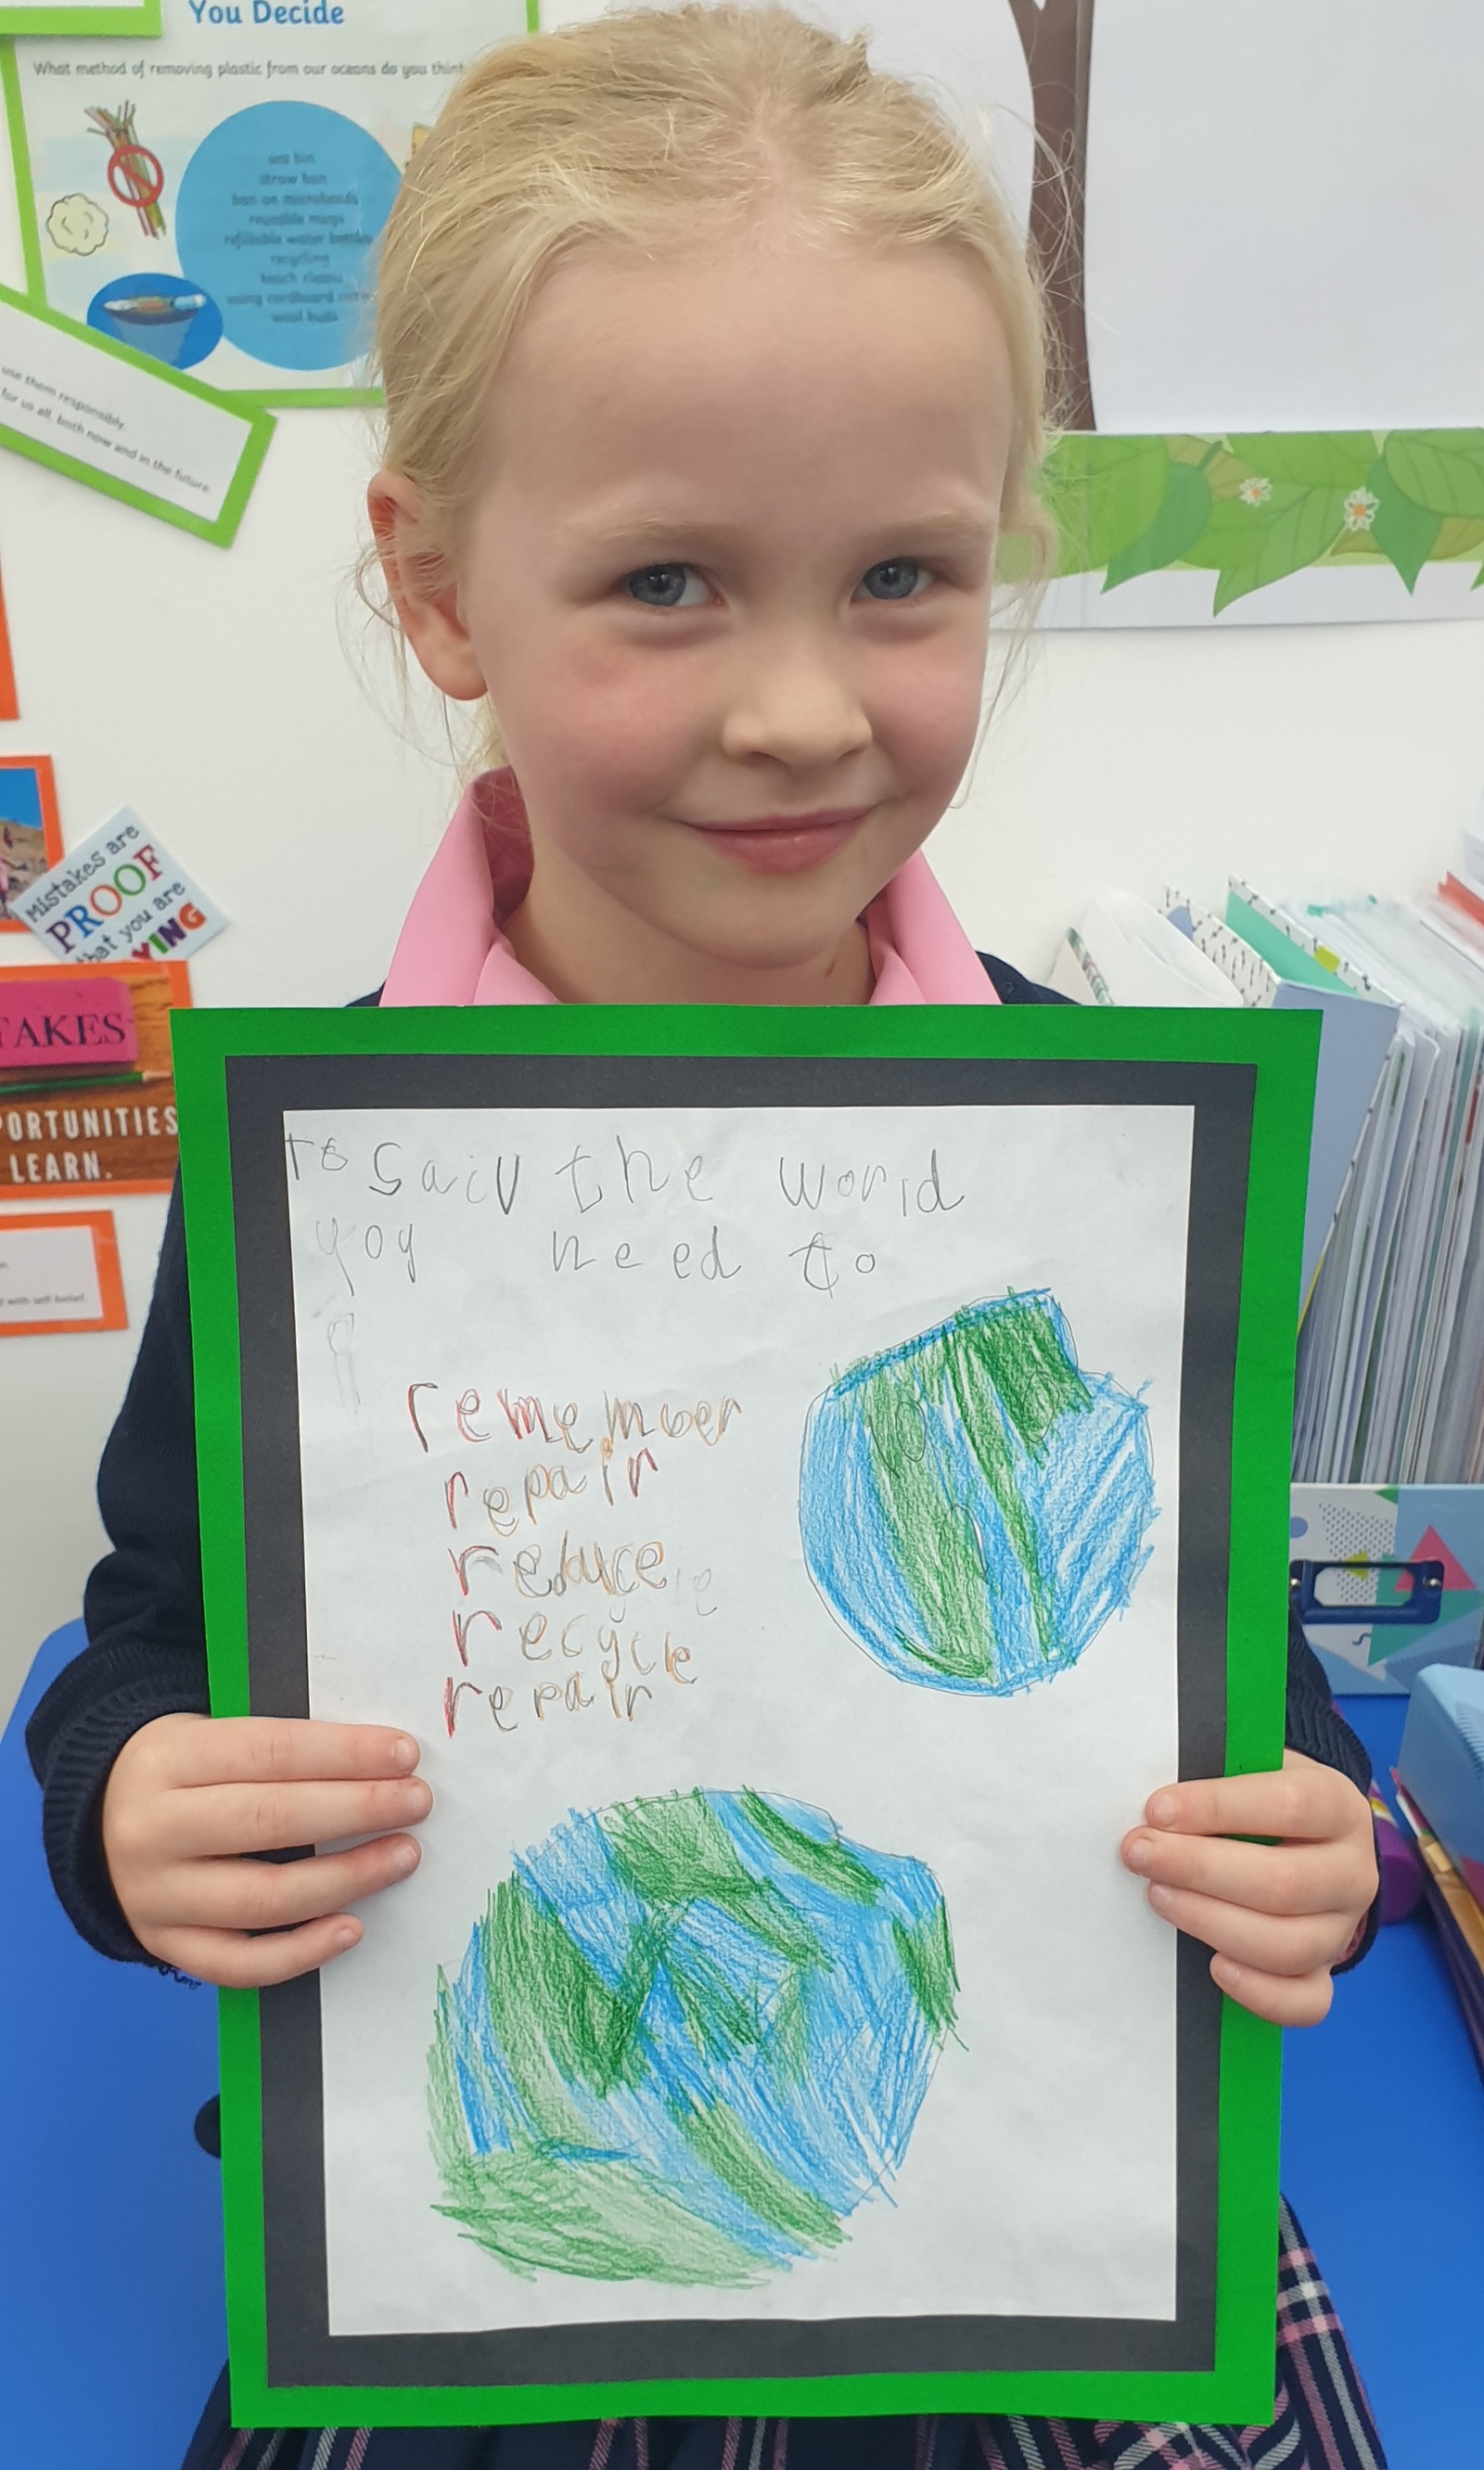 You Decide
What method of removing plastic from our oceans do you think
sea bin
straw ban
ban on microbeads
reusable mugs
refillable water bottles
recycling
beach cleans
using cardboard
wool buds
use them responsibly.
for us all, both now and in the future
Mistakes are
PROOF
that you are
YING
TAKES
PORTUNITIES
LEARN.
with self-belief.
to saiv the world
yoy need to
remember
repair
reduce
recycle
repair